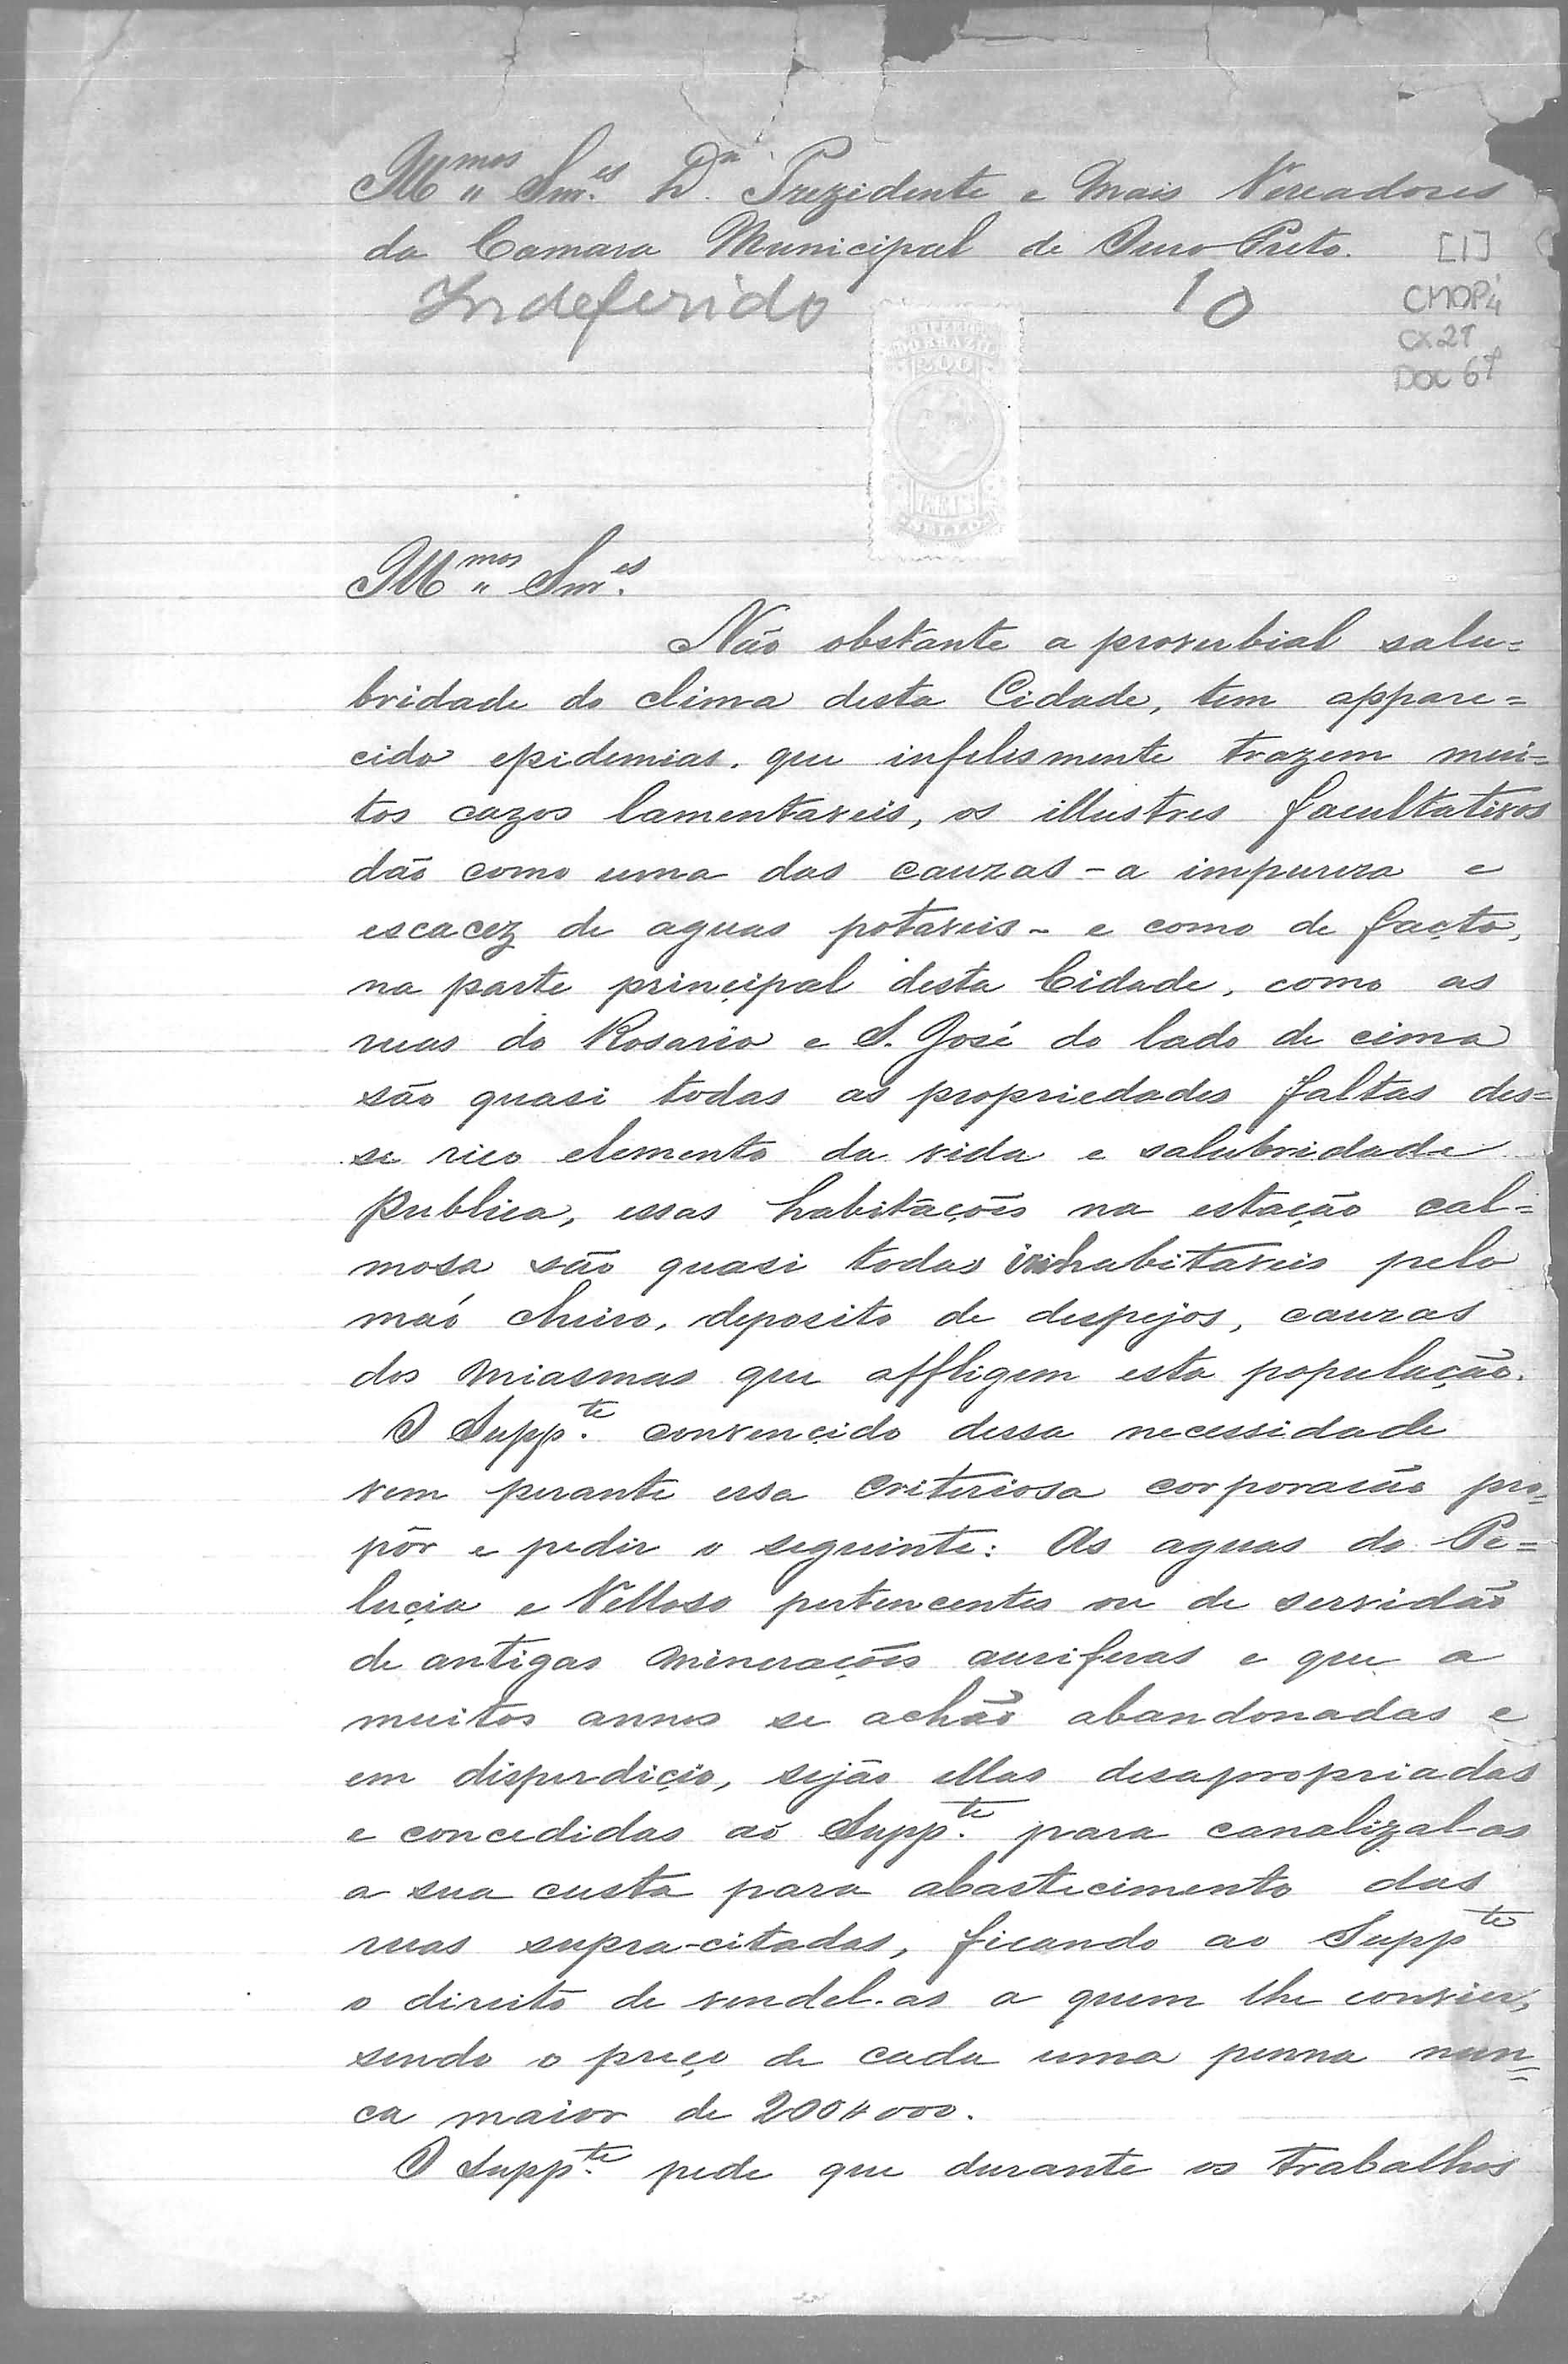 Ill.mos Snr.es D.or Prezidente e Mais Vereadores
da Camara Municipal de Ouro Preto.
[1]
Indeferido
10
CMOP4
CX 21
DOC 67
IMPERIO
DO BRAZIL
200
REIS
SELLO
Ill.mos Snr.es
Não obstante a proverbial salu=
bridade do clima desta Cidade, tem appare=
cido epidemias. que infelismente trazem mui=
tos cazos lamentaveis, os illustres facultativos
dão como uma das cauzas - a impureza e
escacez de aguas potaveis - e como de facto,
na parte principal desta Cidade, como as
ruas do Rosario e S. José do lado de cima
são quasi todas as propriedades faltas des=
se rico elemento da vida e salubridade
publica, essas habitações na estação cal=
mosa são quasi todas inhabitaveis pelo
maó cheiro, deposito de despejos, cauzas
dos miasmas que affligem esta população.
O Supp.te convencido dessa necessidade
vem perante essa criteriosa corporacão pro=
pôr e pedir o seguinte: As aguas do Pe=
lucia e Velloso pertencentes ou de servidão
de antigas minerações auriferas e que a
muitos annos se achão abandonadas e
em disperdiçio, sejão ellas desapropriadas
e concedidas aó Supp.te para canalizal-as
a sua custa para abastecimento das
ruas supra-citadas, ficando ao Suppte
o direito de vendel-as a quem lhe convier,
sendo o preço de cada uma penna nun=
ca maior de 200$000.
O Supp.te pede que durante os trabalhos